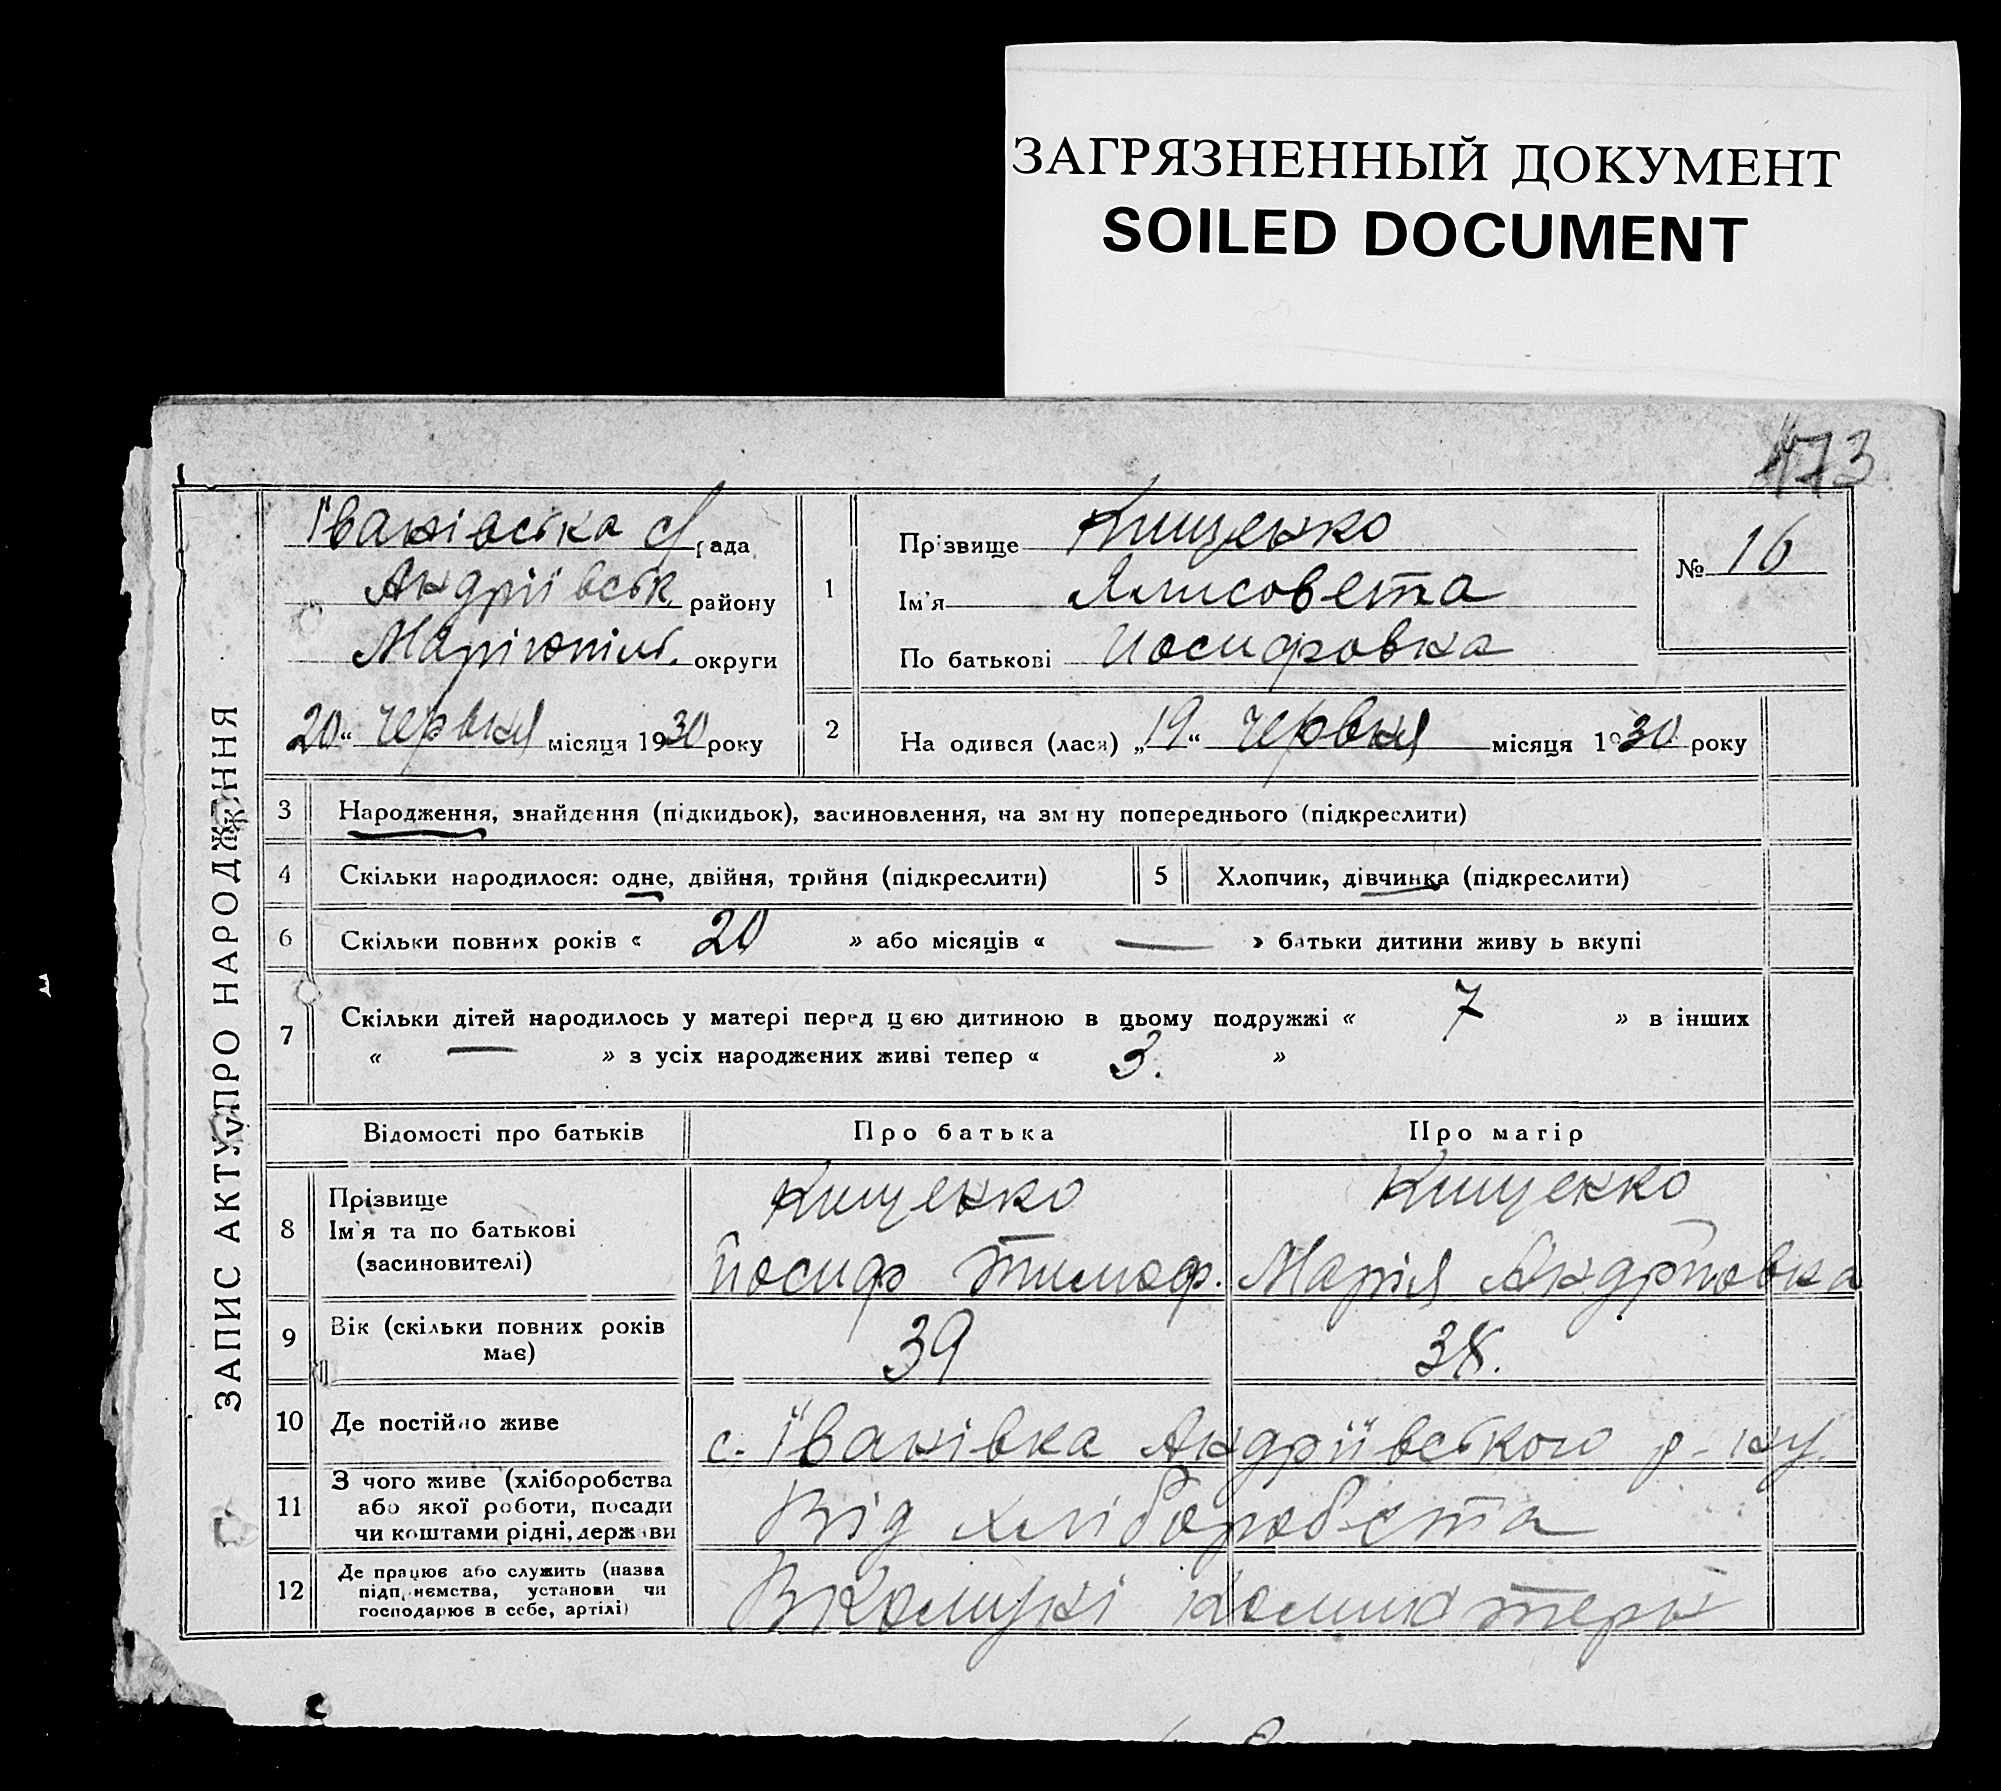 ЗАГРЯЗНЕННЫЙ ДОКУМЕНТ
SOILED DOCUMENT
173
ЗАПИС АКТУ ПРО НАРОДЖЕННЯ
Іванівська с/рада
Андріївськ. району
Маріюпіль. округи
20 “ червня місяця 1930 року
1
Прізвище Кищенко
Ім'я Ялисовета
По батькові Иосифовна
№ 16
2 На одився (лася) „19“ червня місяця 1930 року
3 Народження, знайдення (підкидьок), засиновлення, на зм ну попереднього (підкреслити)
4 Скільки народилося: одне, двійня, трійня (підкреслити)
5 Хлопчик, дівчинка (підкреслити)
6 Скільки повних років « 20 » або місяців « — » батьки дитини живу ь вкупі
7 Скільки дітей народилось у матері перед цією дитиною в цьому подружжі « 7 » в інших
« — » з усіх народжених живі тепер « 3. »
Відомості про батьків Про батька Про матір
8 Прізвище
Ім'я та по батькові
(засиновителі)
Кищенко
Йосиф Тимоф.
Кищенко
Марія Андріївна
9 Вік (скільки повних років
має)
39
38.
10 Де постійно живе
с. Іванівка Андріївського р-ну
11 З чого живе (хліборобства
або якої роботи, посади
чи коштами рідні, держави
Від хліборобста
12 Де працює або служить (назва
підприємства, установи чи
господарює в себе, артілі)
В Комуні